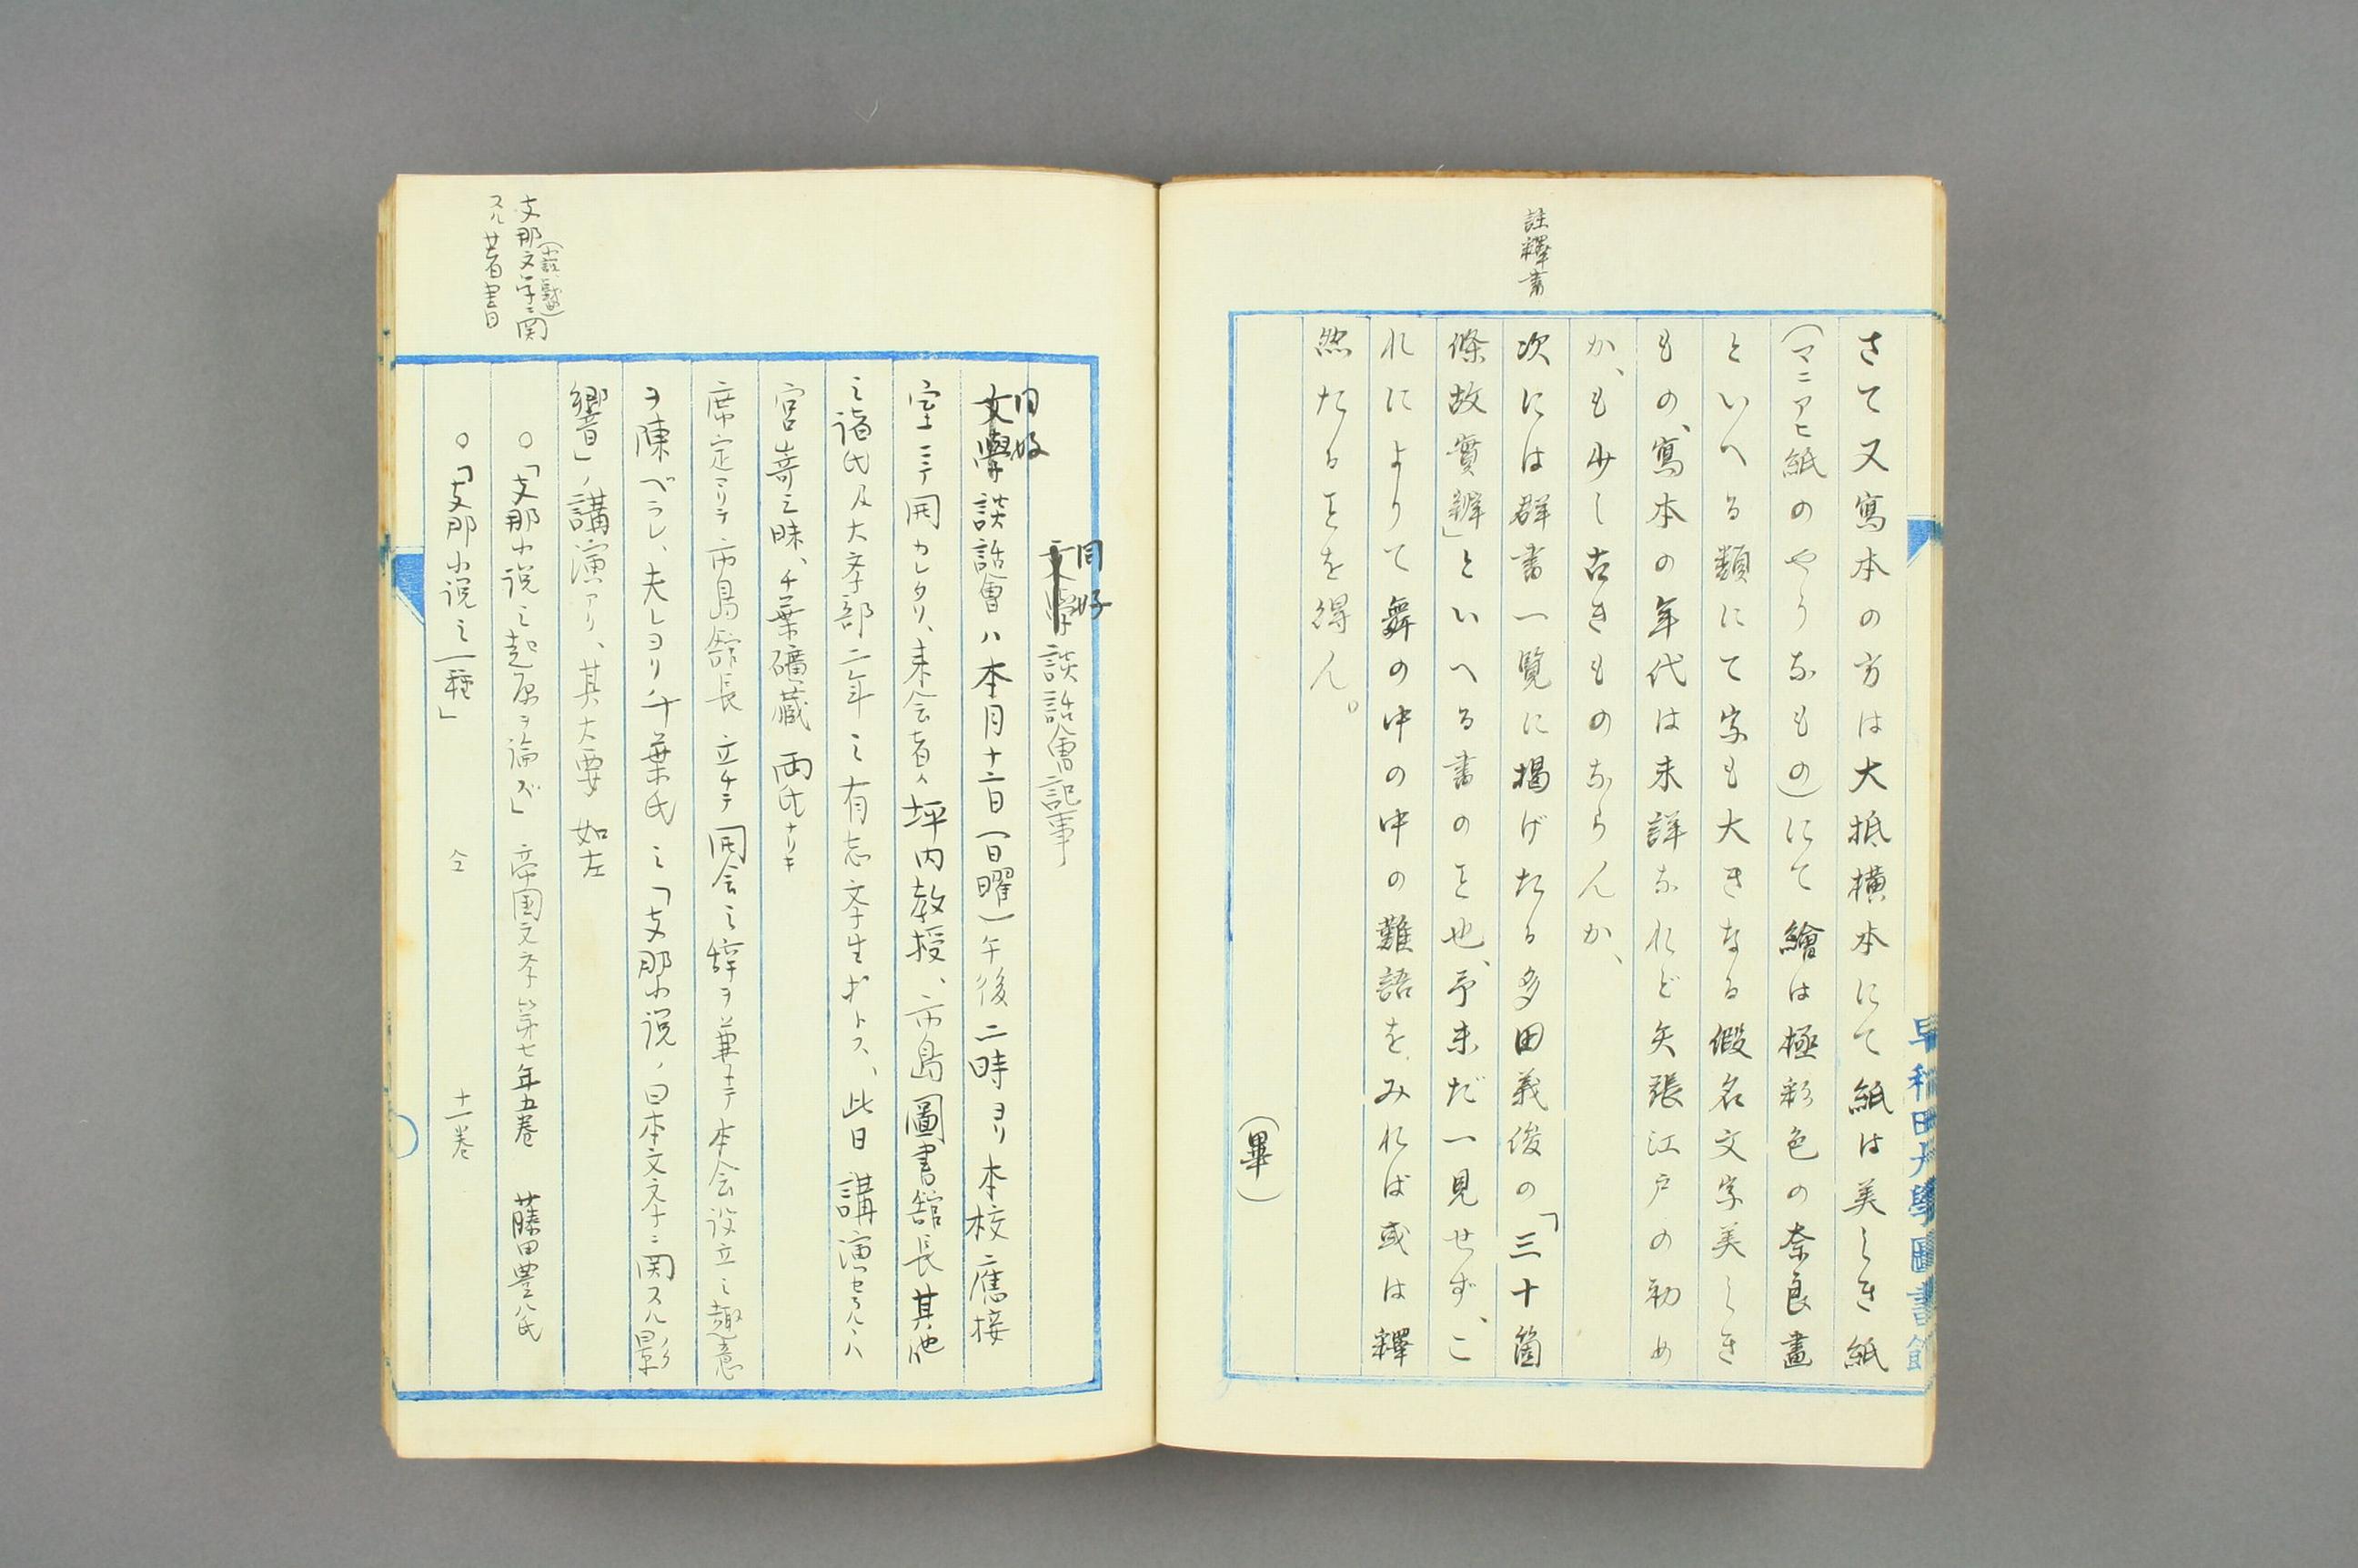 註釋書
さて又寫本の方は大抵橫本にて紙は美しき紙
(マニアヒ紙のやうなもの)にて繪は極彩色の奈良畫
といへる類にて字も大きなる假名文字美しき
もの、寫本の年代は未詳なれど矢張江戸の初め
か、も少し古きものならんか、
次には群書一覽に揭げたる多田義俊の「三十箇
條故實辨」といへる書のみ也、予未だ一見せず、こ
れによりて舞の中の中の難語をみれば或は釋
然たるを得ん。
(畢)
早稻田大學圖書館
同好
文學談話會記事
同好
文學談話會ハ本月十二日(日曜)午後二時ヨリ本校應接
室ニテ開カレタリ、来会者ハ坪内教授、市島圖書館長其他
之諸氏及大学部二年之有志文学生ホトス、此日講演セラルヽハ
宮嵜三昧、千葉礦藏両氏ナリキ
席定リテ市島館長立チテ開会之辞ヲ兼テ本会設立之趣意
ヲ陳ベラレ、夫レヨリ千葉氏之「支那小説ノ日本文学ニ関スル影
響」ノ講演アリ、其大要如左
○「支那小説之起原ヲ論ズ」 帝国文学第七年五巻 藤田豊八氏
○「支那小説之一種」 仝 十一巻
支那文学ニ関
スル著書目